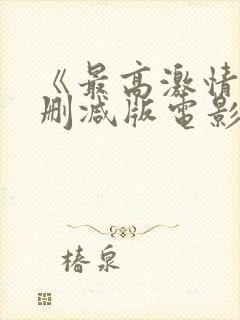 《最高激情
删减版电影
椿泉